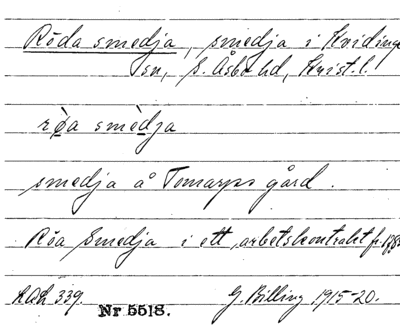 Röda smedja, smedja i Kvidinge
sn, S. Åsbo hd, Krist. l.
rø̀a smèdja
smedja å Tomarps gård.
Röa Smedja i ett arbetskontrakt fr.
LAL 339. Nr 5518. G. Billing 1915-20.